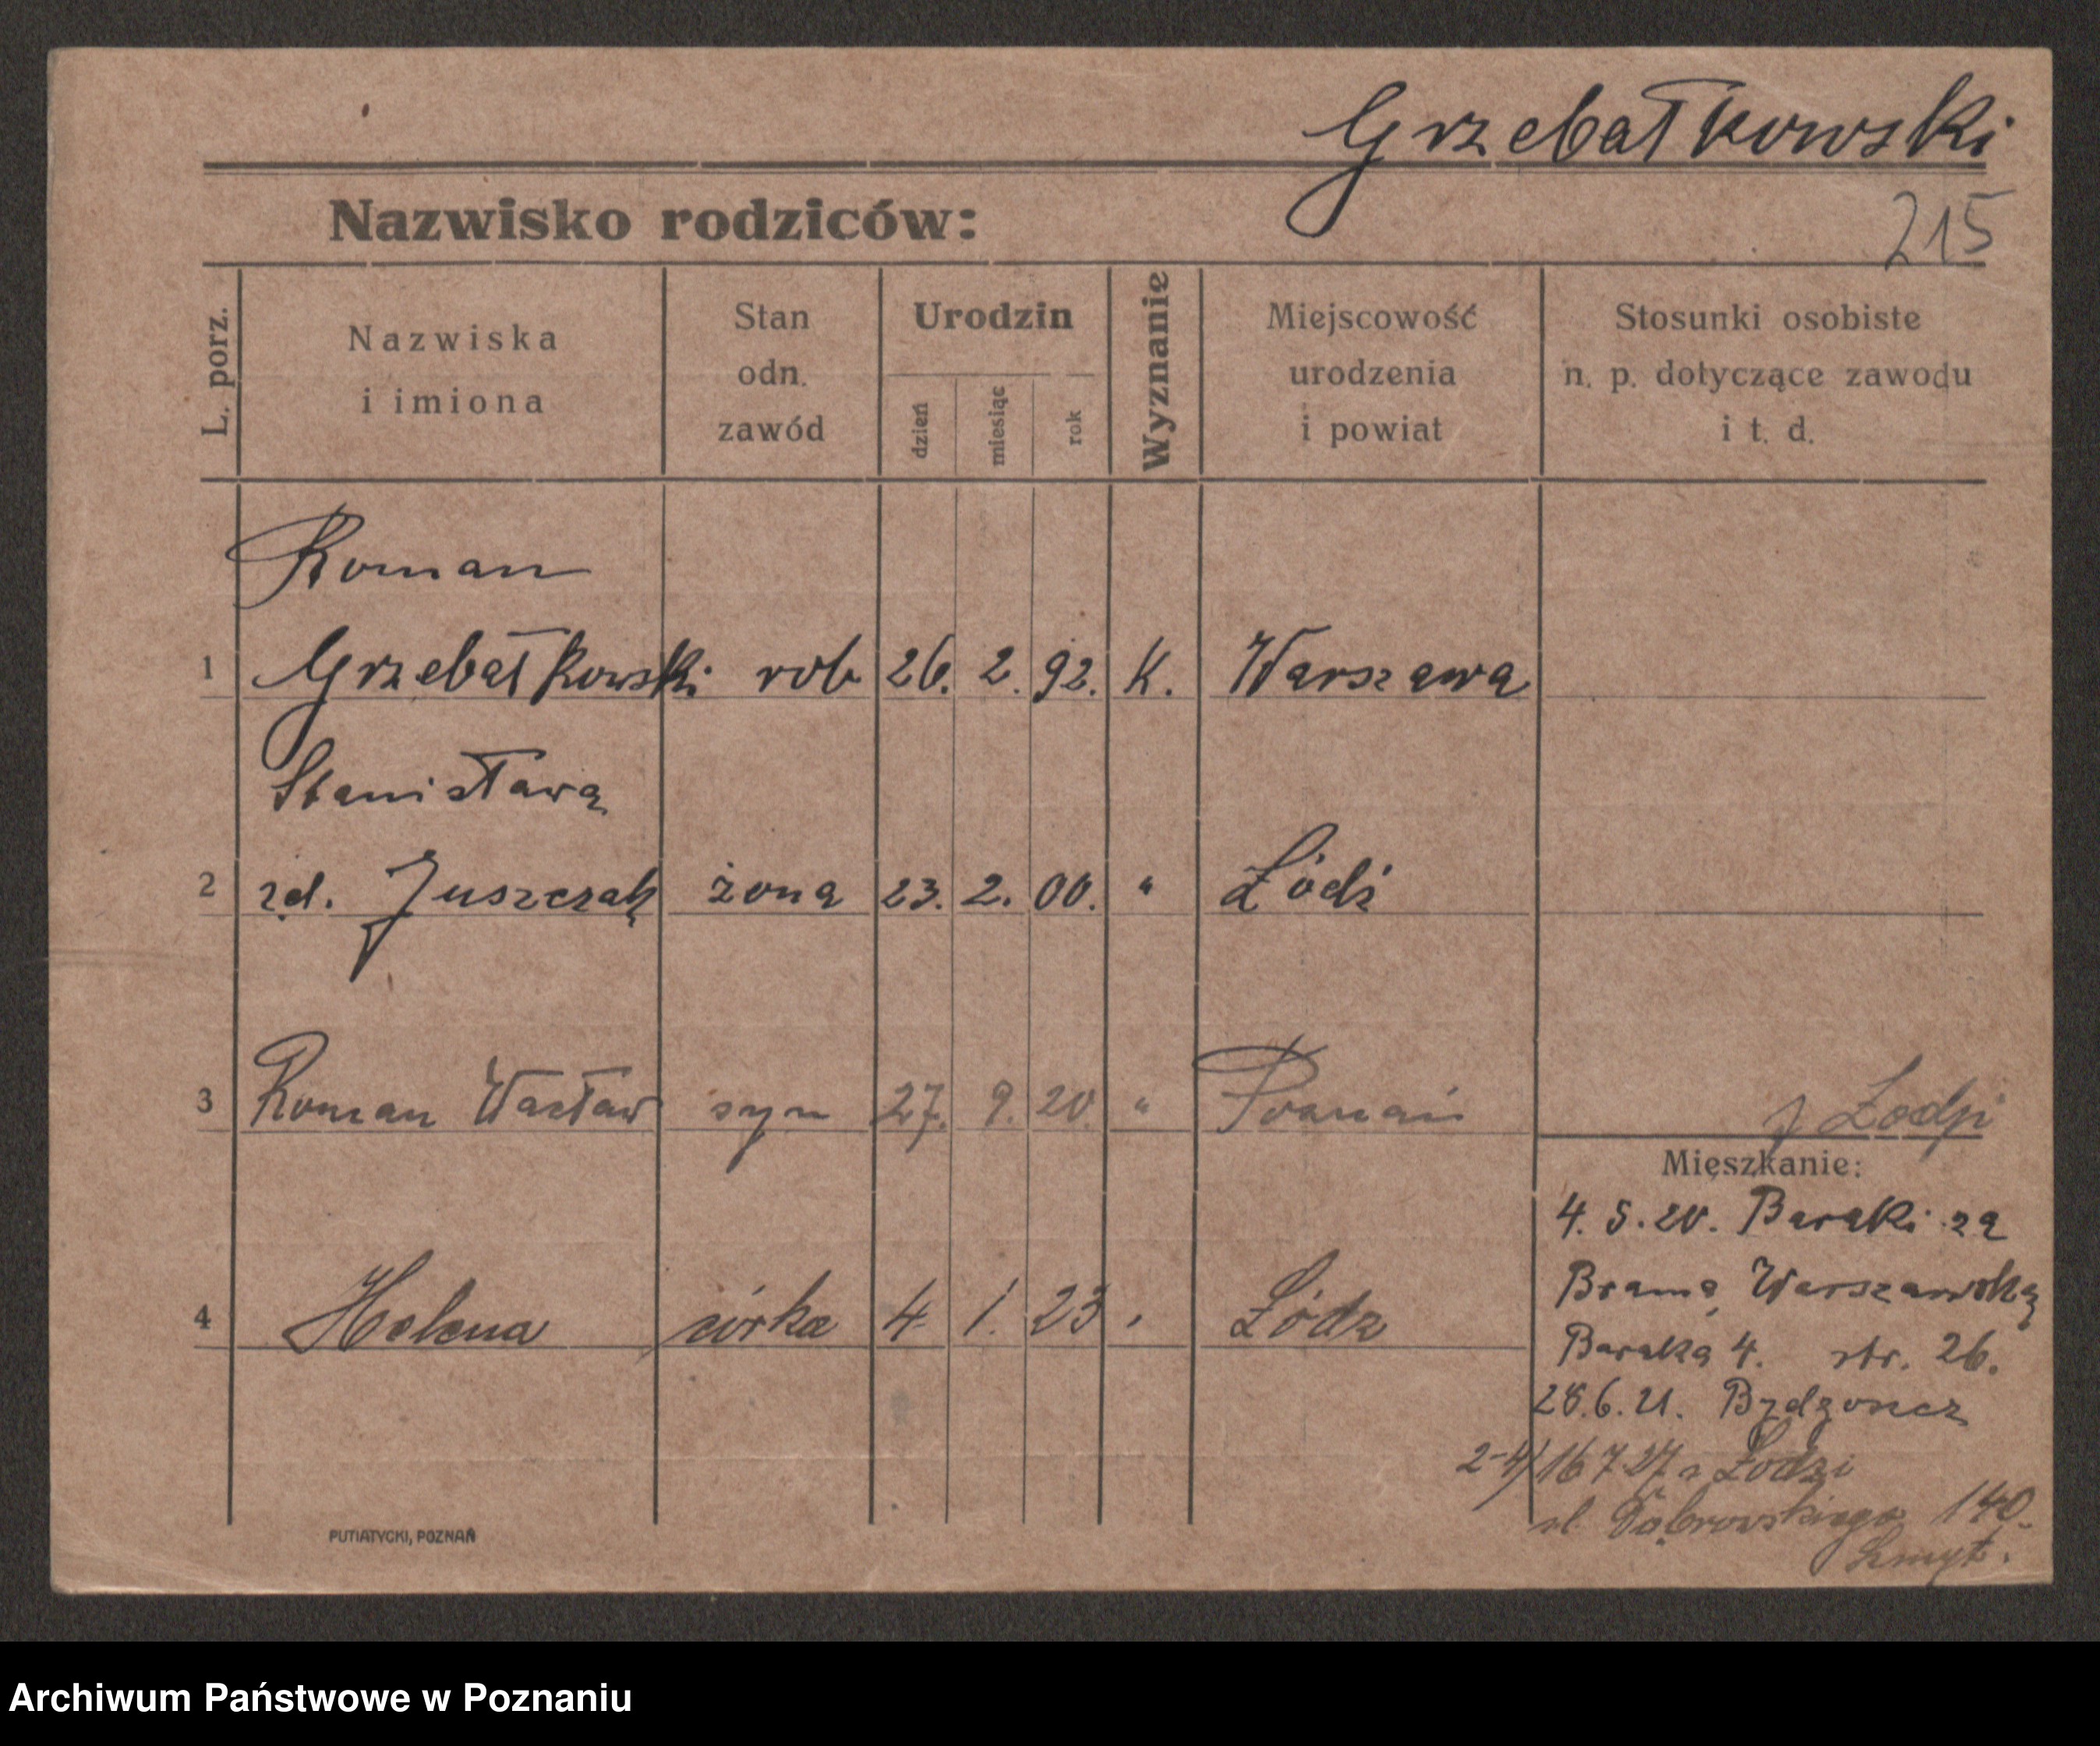 Grzebałkowski
Nazwisko rodziców:
215
L. porz.
Nazwiska
i imiona
Stan
odn.
zawód
Urodzin
dzień
miesiąc
rok
Wyznanie
Miejscowość
urodzenia
i powiat
Stosunki osobiste
n. p. dotyczące zawodu
i t. d.
Roman
1 Grzebałkowski rob 26. 2. 92. K. Warszawa
Stanisława
2 zd. Juszczak żona 23. 2. 00. " Łódź
3 Roman Wacław syn 27. 9. 20. " Poznań
z Łodzi
Mieszkanie:
4. 5. 20. Baraki za
Bramą Warszawską
4 Helena córka 4 1. 23 " Łódz
Baraka 4. str. 26.
28.6.21. Bydgoszcz
2-4) 16 7 27 z Łodzi
ul. Dąbrowskiego 140.
Szmyt.
PUTIATYCKI, POZNAŃ
Archiwum Państwowe w Poznaniu